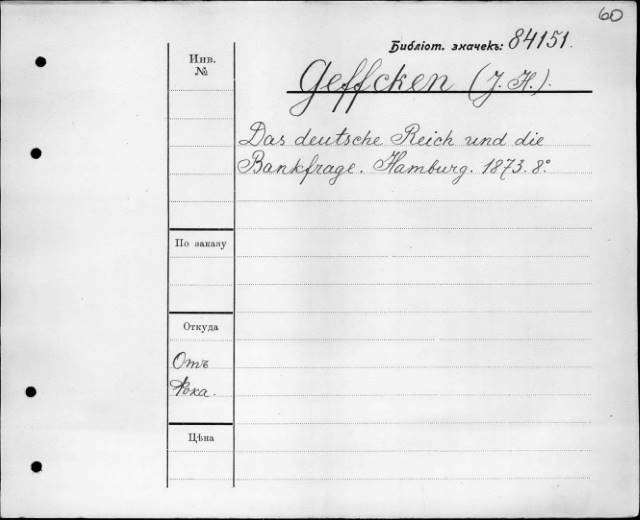 60
Библіот. значекъ: 84151.
Инв.
№
Geffcken (J. H.).
Das deutsche Reich und die
Bankfrage. Hamburg. 1873. 8°
По заказу
Откуда
Отъ
Фока.
Цѣна